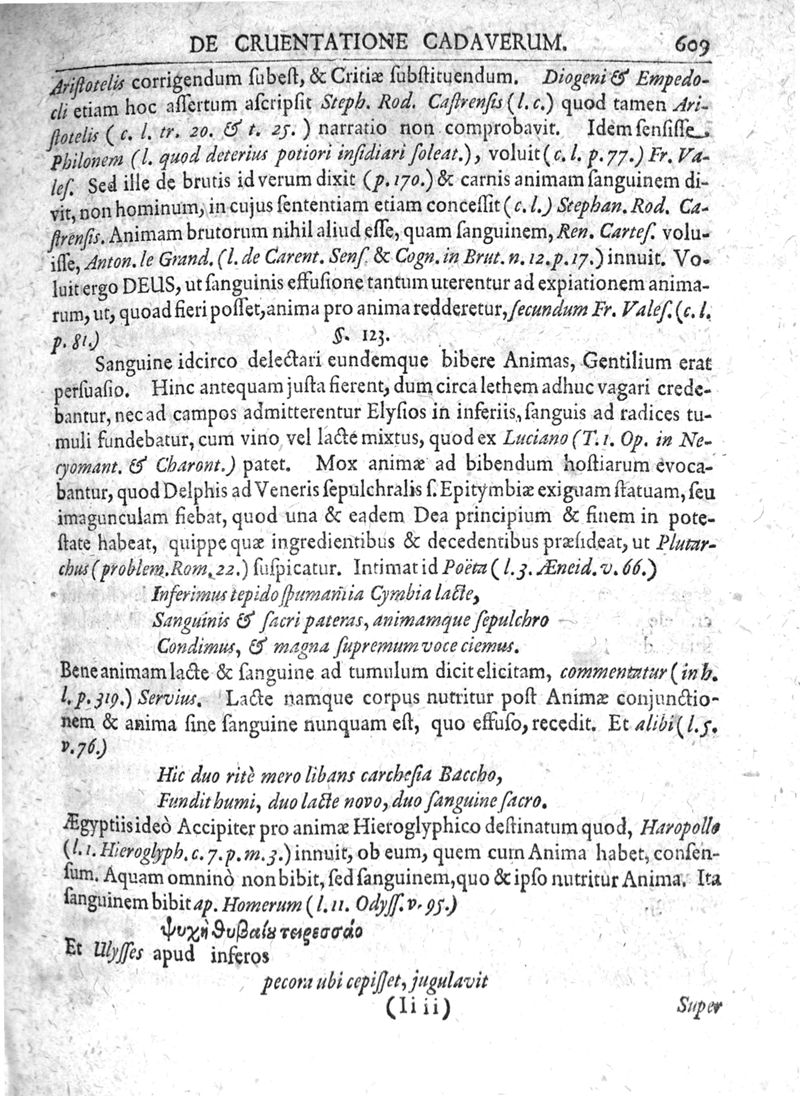 DE CRUENTATIONE CADAVERUM. 609
Ariſtotelis corrigendum ſubeſt, & Critiæ ſubſtituendum. Diogeni & Empedo-
cli etiam hoc aſſertum aſcripſit Steph. Rod. Caſtrenſis (l. c.) quod tamen Ari-
ſtotelis (c. l. tr. 20. & t. 25.) narratio non comprobavit. Idem ſenſiſſe
Philonem (l. quod deterius potiori inſidiari ſoleat.), voluit (c. l. p. 77.) Fr. Va-
leſ. Sed ille de brutis id verum dixit (p. 170.) & carnis animam ſanguinem di-
vit, non hominum, in cujus ſententiam etiam conceſſit (c. l.) Stephan. Rod. Ca-
ſtrenſis. Animam brutorum nihil aliud eſſe, quam ſanguinem, Ren. Carteſ. volu-
iſſe, Anton. le Grand. (l. de Carent. Senſ. & Cogn. in Brut. n. 12. p. 17.) innuit. Vo-
luit ergo DEUS, ut ſanguinis effuſione tantum uterentur ad expiationem anima-
rum, ut, quoad fieri poſſet, anima pro anima redderetur, ſecundum Fr. Valeſ. (c. l.
p. 81.) §. 123.
Sanguine idcirco delectari eundemque bibere Animas, Gentilium erat
perſuaſio. Hinc antequam juſta fierent, dum circa lethem adhuc vagari crede-
bantur, nec ad campos admitterentur Elyſios in inferiis, ſanguis ad radices tu-
muli fundebatur, cum vino vel lacte mixtus, quod ex Luciano (T. 1. Op. in Ne-
cyomant. & Charont.) patet. Mox animæ ad bibendum hoſtiarum evoca-
bantur, quod Delphis ad Veneris ſepulchralis ſ. Epitymbiæ exiguam ſtatuam, ſeu
imagunculam fiebat, quod una & eadem Dea principium & finem in pote-
ſtate habeat, quippe quæ ingredientibus & decedentibus præſideat, ut Plutar-
chus (problem. Rom. 22.) ſuſpicatur. Intimat id Poëta (l. 3. Æneid. v. 66.)
Inferimus tepido ſpumantia Cymbia lacte,
Sanguinis & ſacri pateras, animamque ſepulchro
Condimus, & magna ſupremum voce ciemus.
Bene animam lacte & ſanguine ad tumulum dicit elicitam, commentatur (in h.
l. p. 319.) Servius. Lacte namque corpus nutritur poſt Animæ conjunctio-
nem & anima ſine ſanguine nunquam eſt, quo effuſo, recedit. Et alibi (l. 5.
v. 76.)
Hic duo ritè mero libans carcheſia Baccho,
Fundit humi, duo lacte novo, duo ſanguine ſacro.
Ægyptiis ideò Accipiter pro animæ Hieroglyphico deſtinatum quod, Haropollo
(l. 1. Hieroglyph. c. 7. p. m. 3.) innuit, ob eum, quem cum Anima habet, conſen-
ſum. Aquam omninò non bibit, ſed ſanguinem, quo & ipſo nutritur Anima. Ita
ſanguinem bibit ap. Homerum (l. 11. Odyſſ. v. 95.)
ψυχὴ θυβαίου τειρεσσάο
Et Ulyſſes apud inferos
pecora ubi cepiſſet, jugulavit
(Ii ii) Super